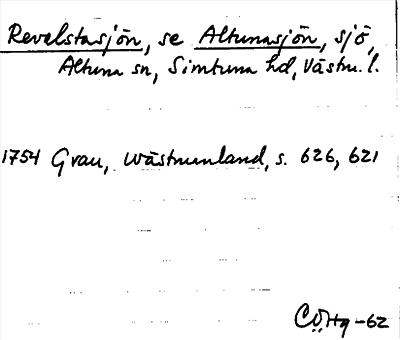 Revelstasjön, se Altunasjön, sjö,
Altuna sn, Simtuna hd, Västm. l.
1754 Grau, Wästmanland, s. 626, 621
CÖHg -62